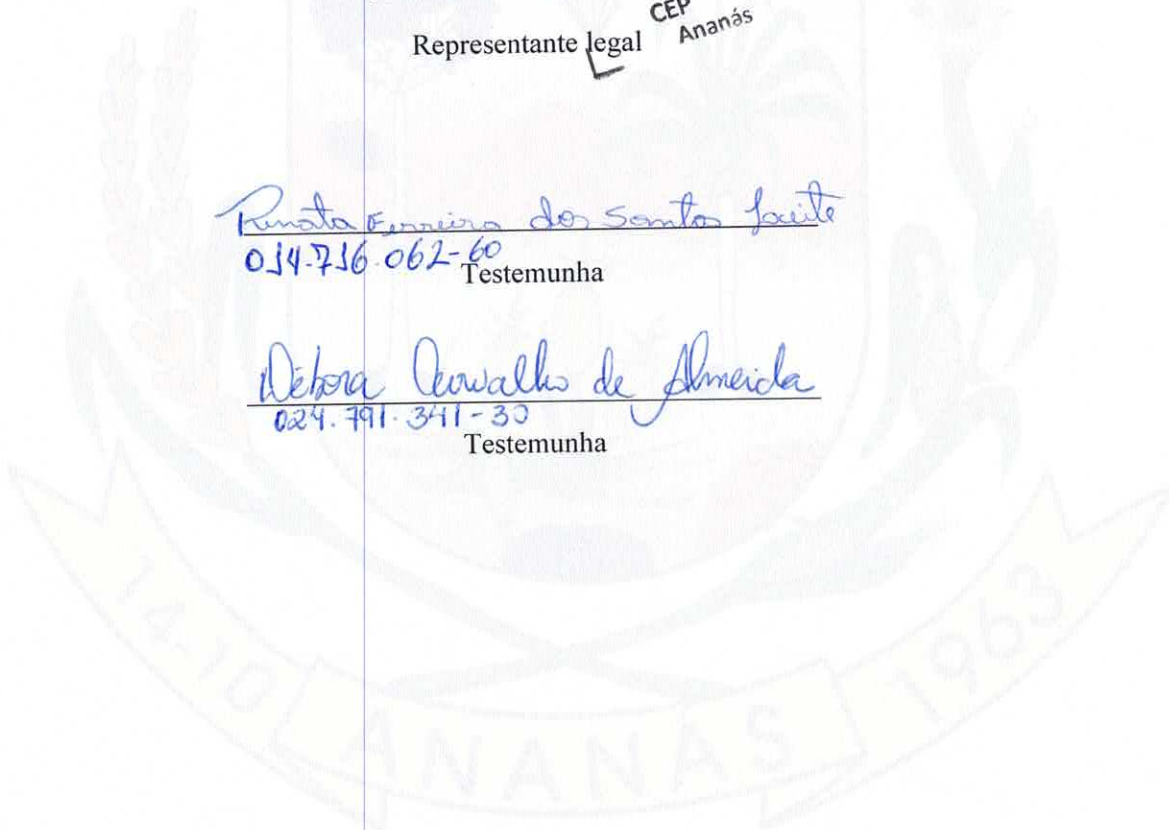 CEP
Ananás
Representante legal
Renata Ferreira dos Santos Leite
014.716.062-60
Testemunha
Débora Carvalho de Almeida
024.791.341-30
Testemunha
14-10 ANANÁS 1963